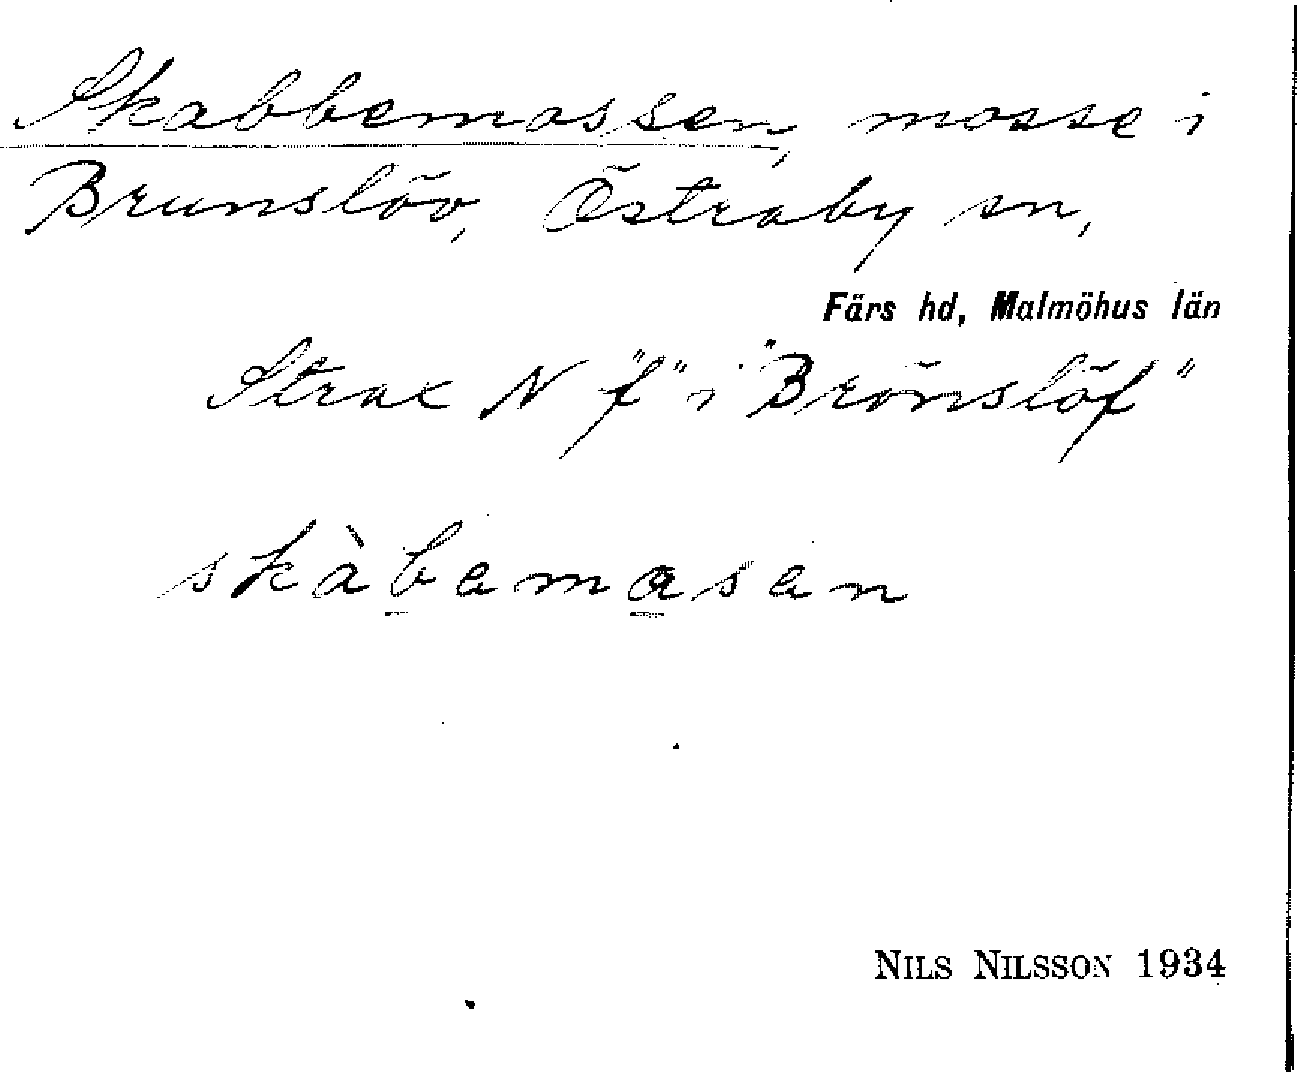 Skabbemossen, mosse i
Brunslöv, Östraby sn,
Färs hd, Malmöhus län
Strax N "f" i "Brönslöf"
skàbamasan
NILS NILSSON 1934